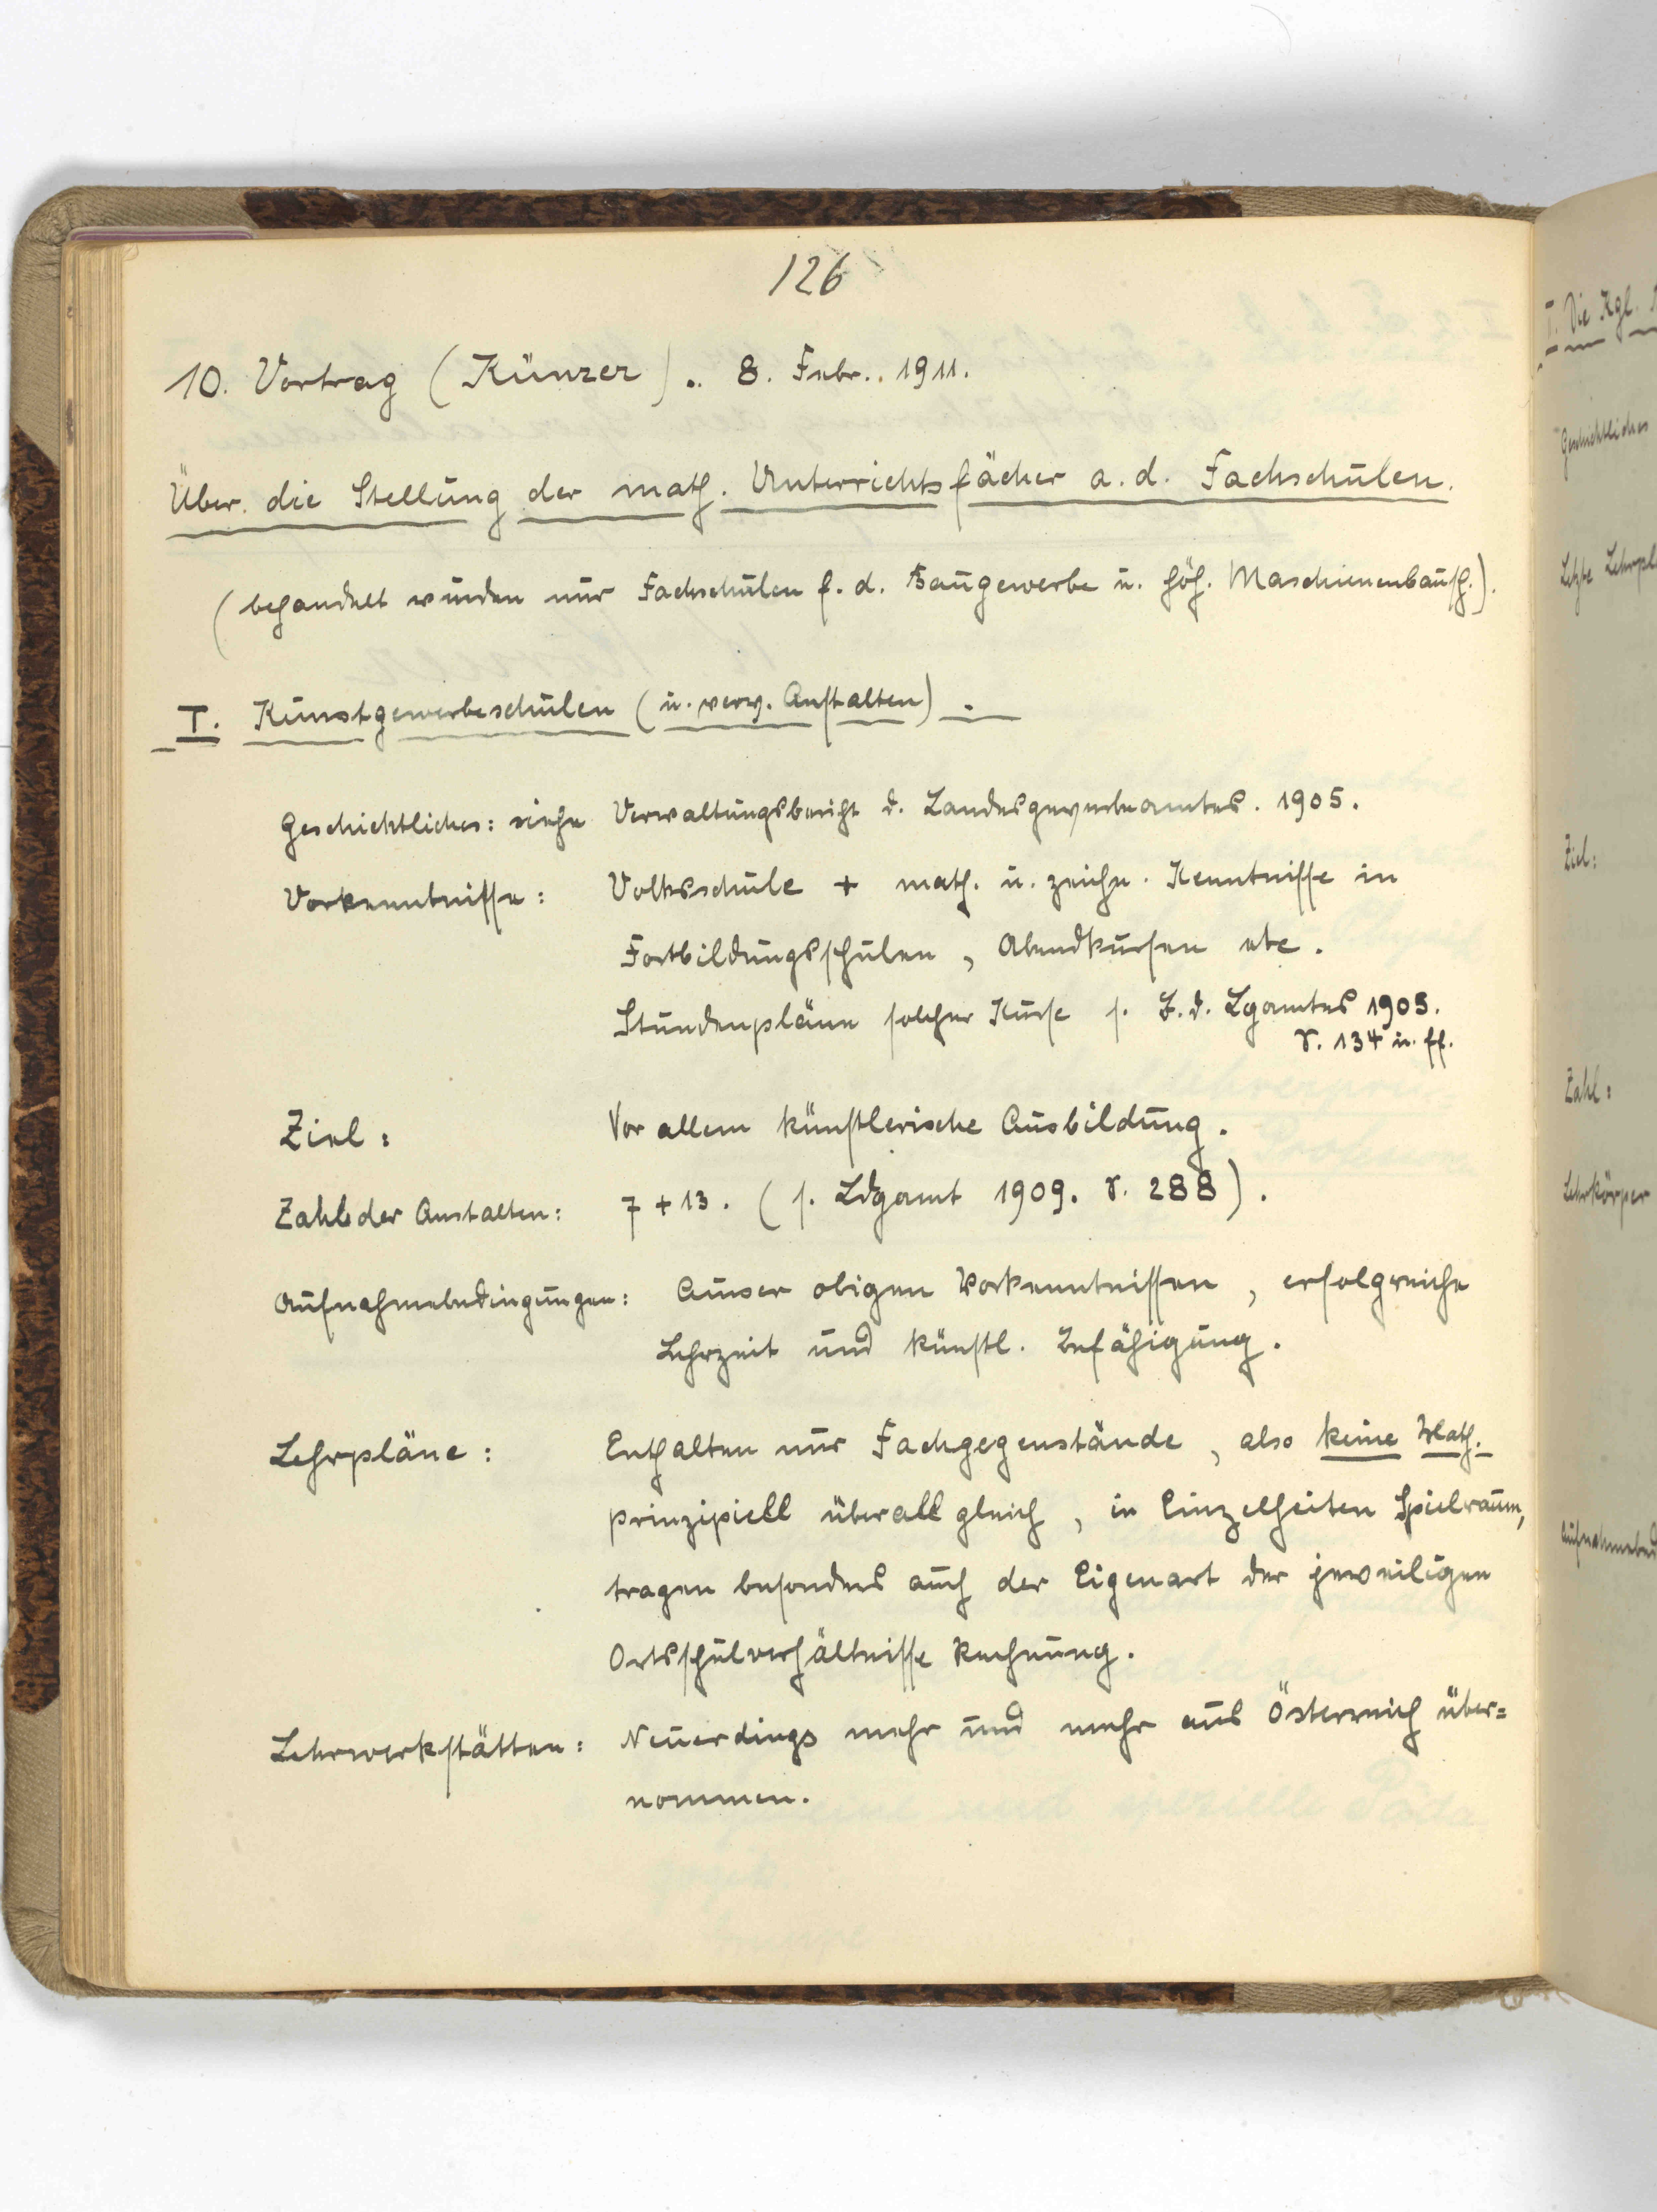 126
10. Vortrag (Künzer). 8. Febr. 1911.
Über die Stellung der math. Unterrichtsfächer a. d. Fachschulen.
(behandelt wurden nur Fachschulen f. d. Baugewerbe u. höh. Maschinenbausch.).
I. Kunstgewerbeschulen (u. verw. Anstalten).
Geschichtliches: siehe Verwaltungsbericht d. Landesgewerbeamtes. 1905.
Vorkenntnisse: Volksschule + math. u. zeichn. Kenntnisse in
Fortbildungsschulen, Abendkursen etc.
Stundenpläne solcher Kurse s. B. d. Lgamtes 1905.
S. 134 u. ff.
Ziel: Vor allem künstlerische Ausbildung.
Zahl der Anstalten: 7 + 13. (s. Ldgamt 1909. S. 288).
Aufnahmebedingungen: Ausser obigen Vorkenntnissen, erfolgreiche
Lehrzeit und künstl. Befähigung.
Lehrpläne: Enthalten nur Fachgegenstände, also keine Math.
prinzipiell überall gleich, in Einzelheiten Spielraum,
tragen besonders auch der Eigenart der jeweiligen
Ortsschulverhältnisse Rechnung.
Lehrwerkstätten: Neuerdings mehr und mehr aus Österreich über=
nommen.
I. Die Kgl.
Geschichtliches
Letzte Lehrpl
Ziel:
Zahl:
Lehrkörper
Aufnahmebed